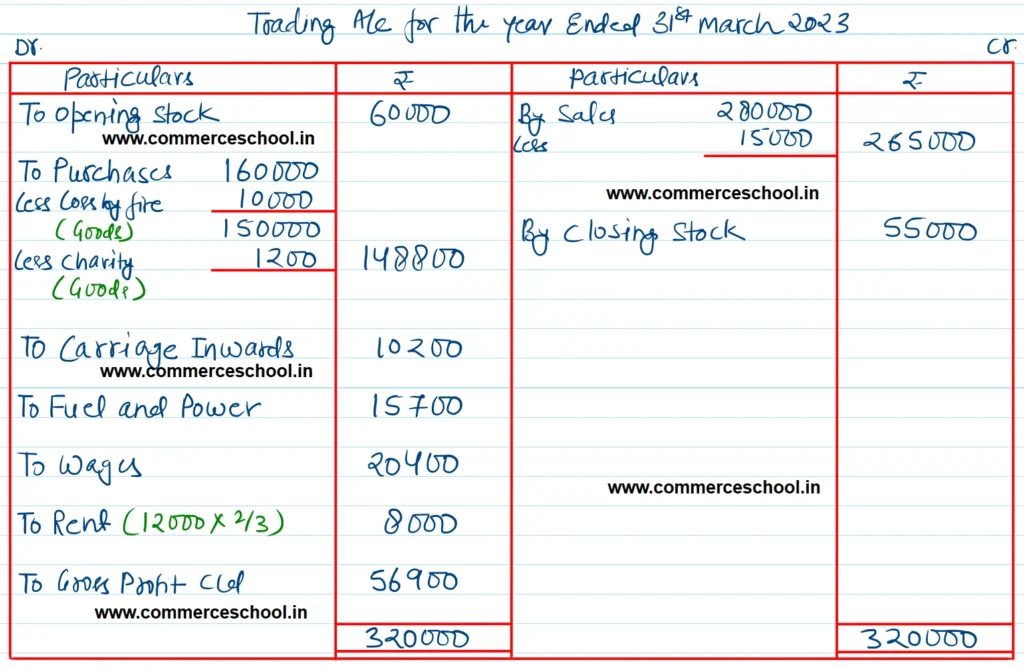 Trading A/c for the year Ended 31st March 2023
Dr. Cr.
Particulars ₹ Particulars ₹
To Opening Stock 60000 By Sales 280000
www.commerceschool.in Less 15000 265000
To Purchases 160000
Less Loss by fire 10000 www.commerceschool.in
(Goods) 150000 By Closing Stock 55000
Less Charity 1200 148800
(Goods)
To Carriage Inwards 10200
www.commerceschool.in
To Fuel and Power 15700
To Wages 20400
www.commerceschool.in
To Rent (12000 x 2/3) 8000
To Gross Profit C/d 56900
www.commerceschool.in
320000 320000